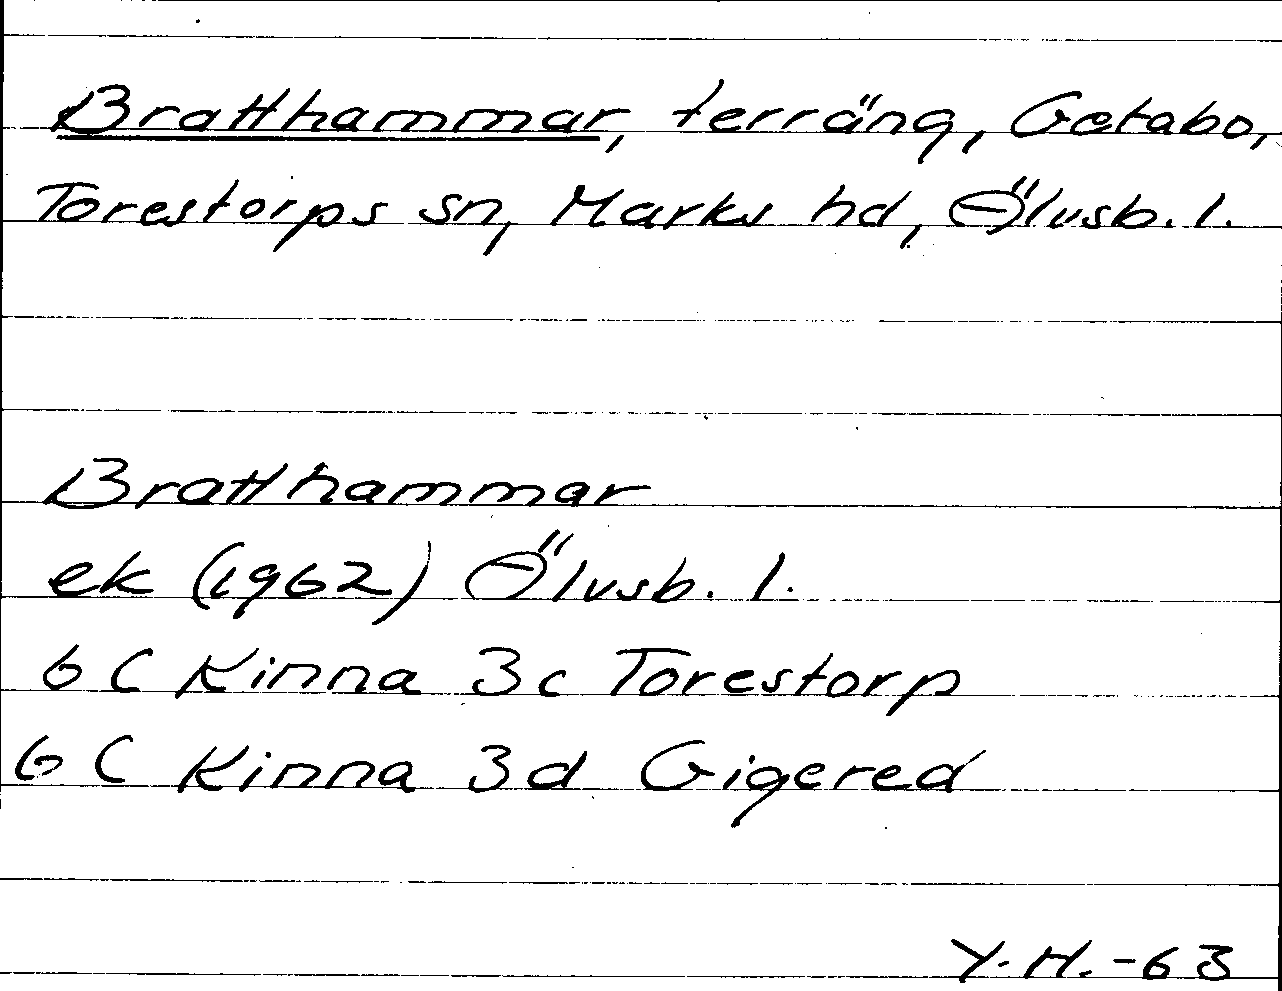 Bratthammar, terräng, Getabo,
Torestorps sn, Marks hd, Älvsb. l.
Bratthammar
ek (1962) Älvsb. l.
6 C Kinna 3c Torestorp
6 C Kinna 3d Gigered
Y.H.-63